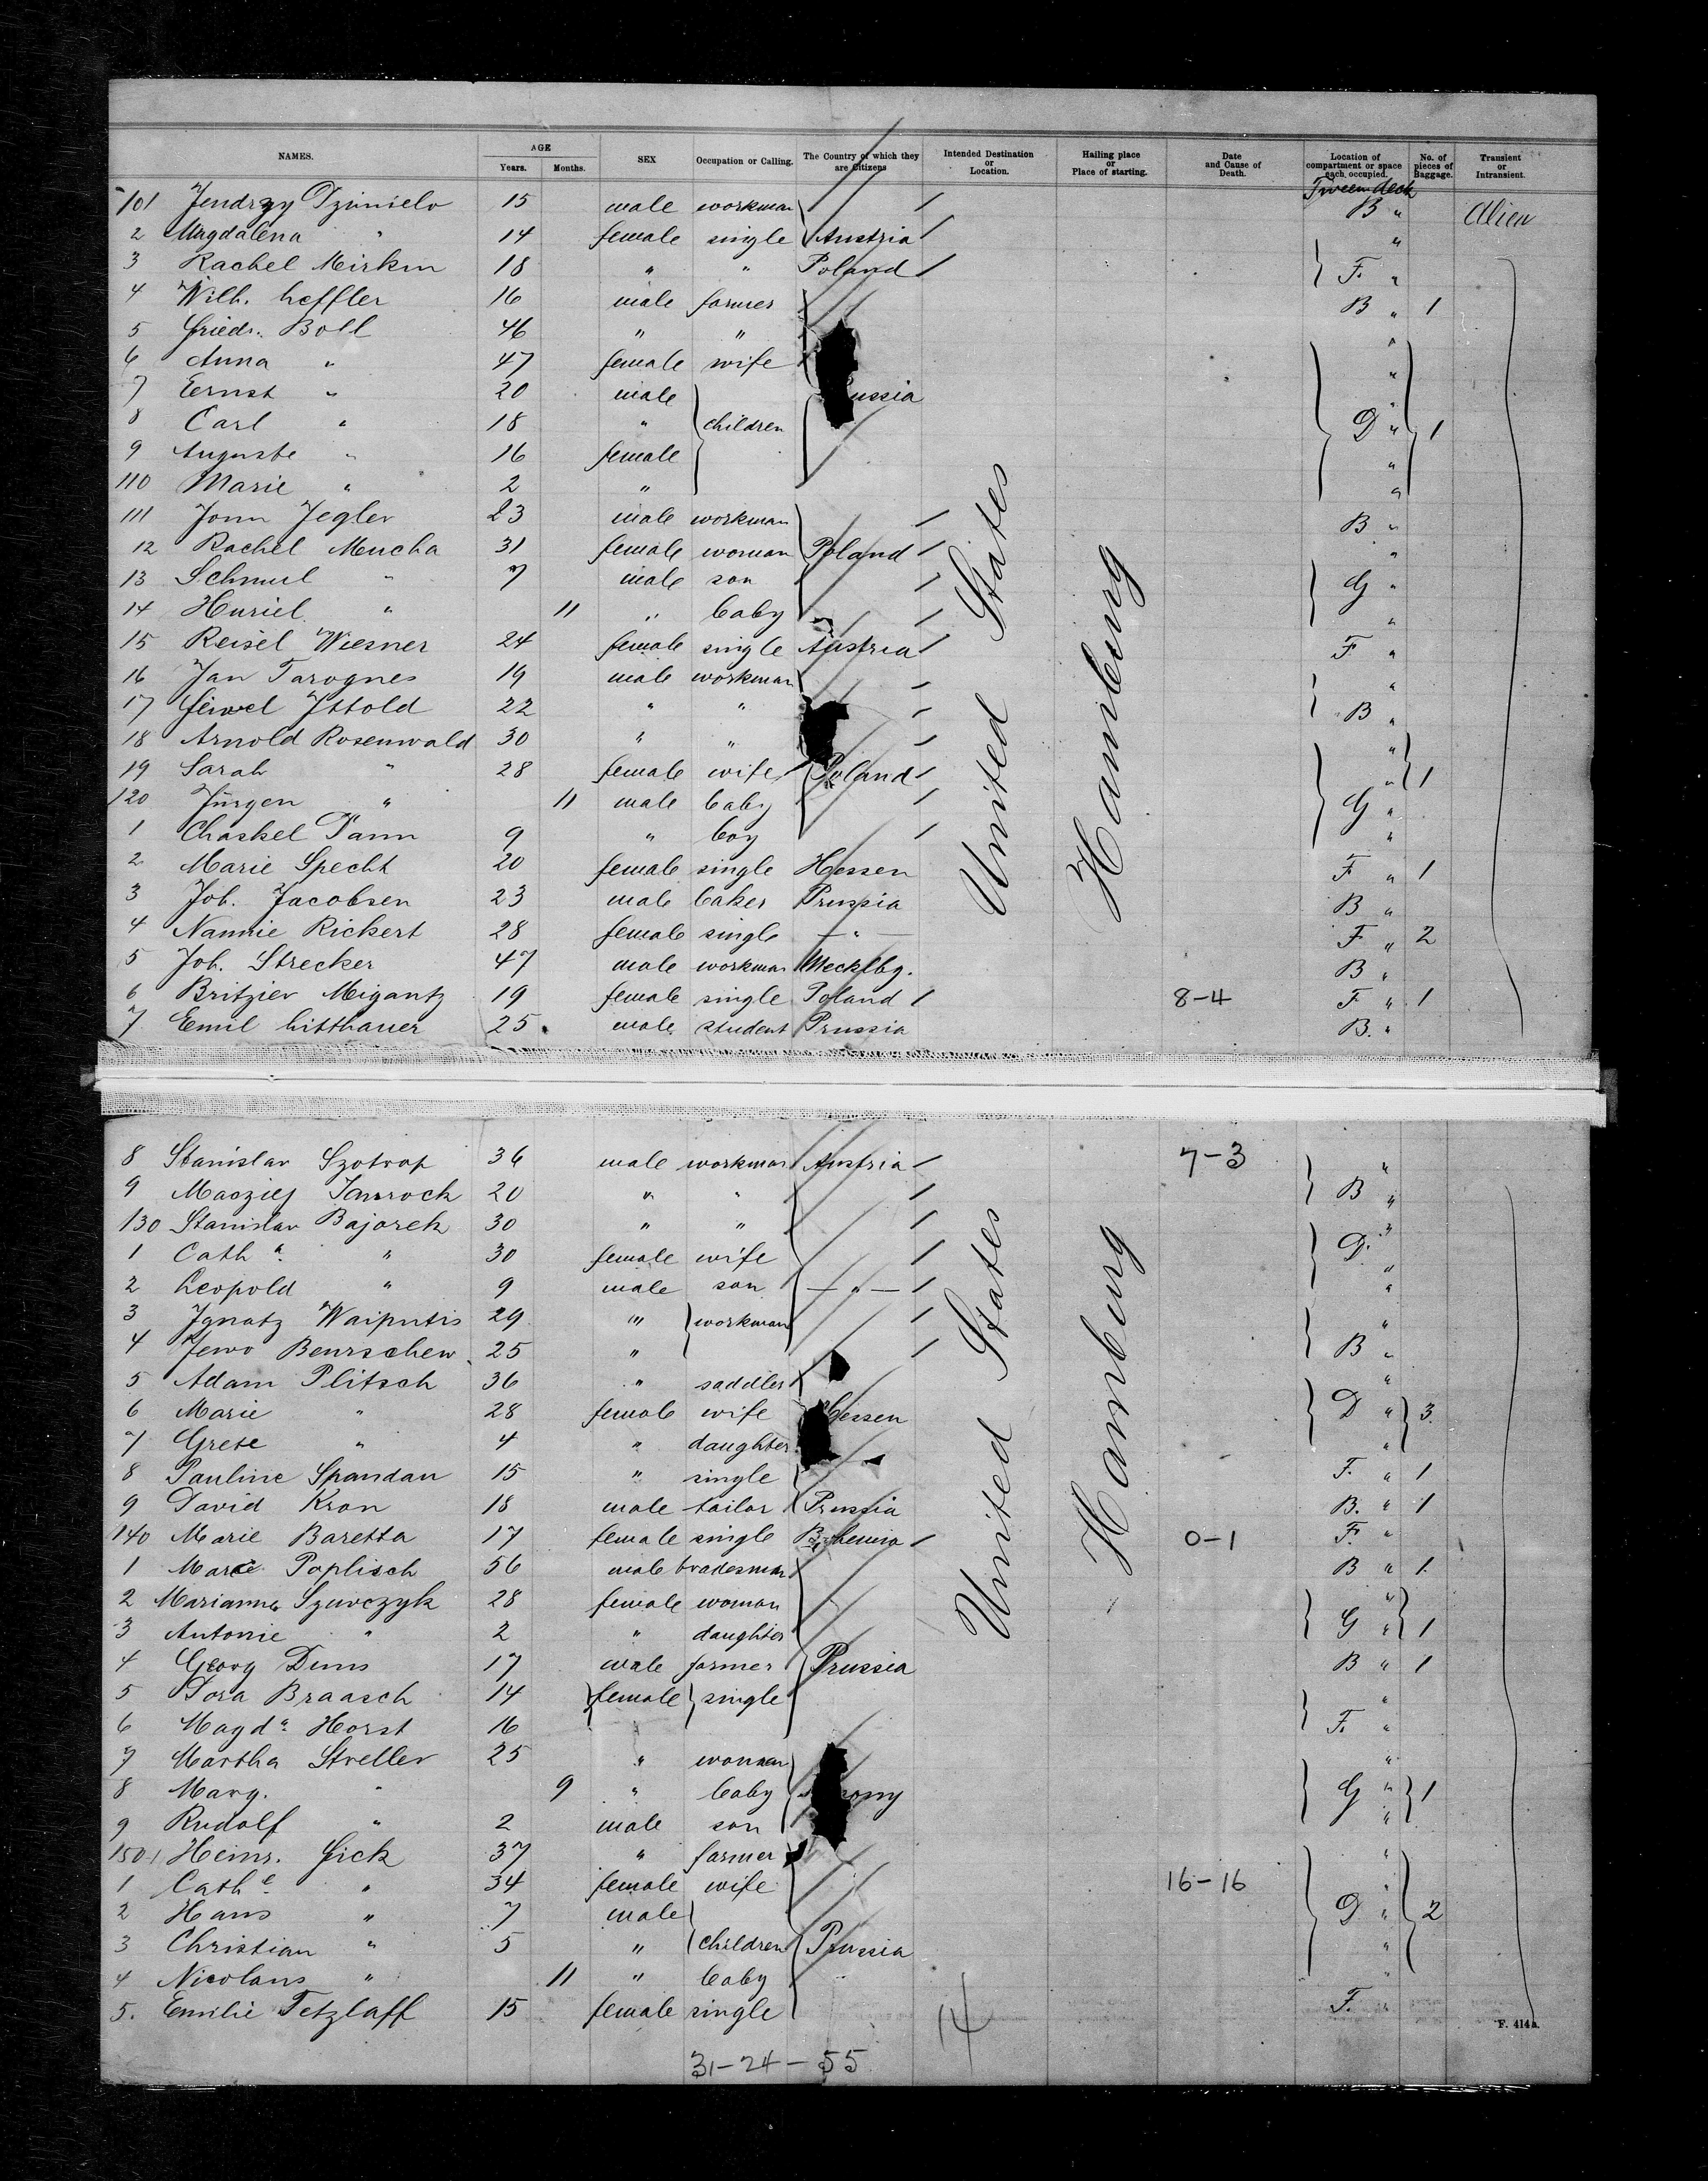 NAMES. AGE Years. Months. SEX Occupation or Calling. The Country of which they are Citizens Intended Destination or Location. Hailing place or Place of starting. Date and Cause of Death. Location of compartment or space each occupied. No. of pieces of Baggage. Transient or Intransient.
Tween deck
101 Jendrzy Dzinielo 15 male workman B " Alien
2 Magdalena " 14 female single Austria "
3 Rachel Mirkin 18 " " Poland F. "
4 Wilh. Leffler 16 male farmer B " 1
5 Friedr. Boll 46 " " "
6 Anna " 47 female wife "
7 Ernst " 20 male ussia "
8 Carl " 18 " children D " 1
9 Auguste " 16 female "
110 Marie " 2 " "
111 Jonn Jegler 23 male workman B "
12 Rachel Mucha 31 female woman Poland "
13 Schmul " 7 male son G "
14 Huriel " 11 " baby "
15 Reisel Wiesner 24 female single Austria F "
16 Jan Tarognes 19 male workman "
17 Jewel Ittold 22 " " B "
18 Arnold Rosenwald 30 " " "
19 Sarah " 28 female wife Poland " 1
120 Jürgen " 11 male baby G "
1 Chaskel Dann 9 " boy "
2 Marie Specht 20 female single Hessen F " 1
3 Joh. Jacobsen 23 male baker Prussia B "
4 Nannie Rickert 28 female single — " — F " 2
5 Joh. Strecker 47 male workman Mecklbg. B "
6 Britzier Migantz 19 female single Poland 8-4 F " 1
7 Emil Litthauer 25 male student Prussia B. "
United States
Hamburg
8 Stanislav Szotrop 36 male workman Austria 7-3 "
9 Macziej Janroch 20 " " B "
130 Stanislav Bajorek 30 " " "
1 Cath a. " 30 female wife D. "
2 Leopold " 9 male son — " — "
3 Ignatz Waiputis 29 " workman "
4 Jewo Benrschew 25 " B "
5 Adam Plitsch 36 " saddler "
6 Marie " 28 female wife Hessen D " 3.
7 Grete " 4 " daughter "
8 Pauline Spandau 15 " single F. " 1
9 David Kron 18 male tailor Prussia B. " 1
140 Marie Baretta 17 female single Bohemia 0-1 F. "
1 Poplisch 56 male tradesman B " 1.
2 Marianna Szewczyk 28 female woman "
3 Antonie " 2 " daughter G " 1
4 Georg Dims 17 male farmer Prussia B " 1
5 Dora Braasch 14 female single "
6 Magd a. Horst 16 " F. "
7 Martha Streller 25 " woman "
8 Marg. " 9 " baby ony G " 1
9 Rudolf " 2 male son "
150 Heinr. Fick 37 " farmer "
1 Cath e. " 34 female wife 16-16 "
2 Hans " 7 male D " 2
3 Christian " 5 " children Prussia "
4 Nicolaus " 11 " baby "
5. Emilie Tetzlaff 15 female single F. "
United States
Hamburg
F. 414a.
14
31-24-55